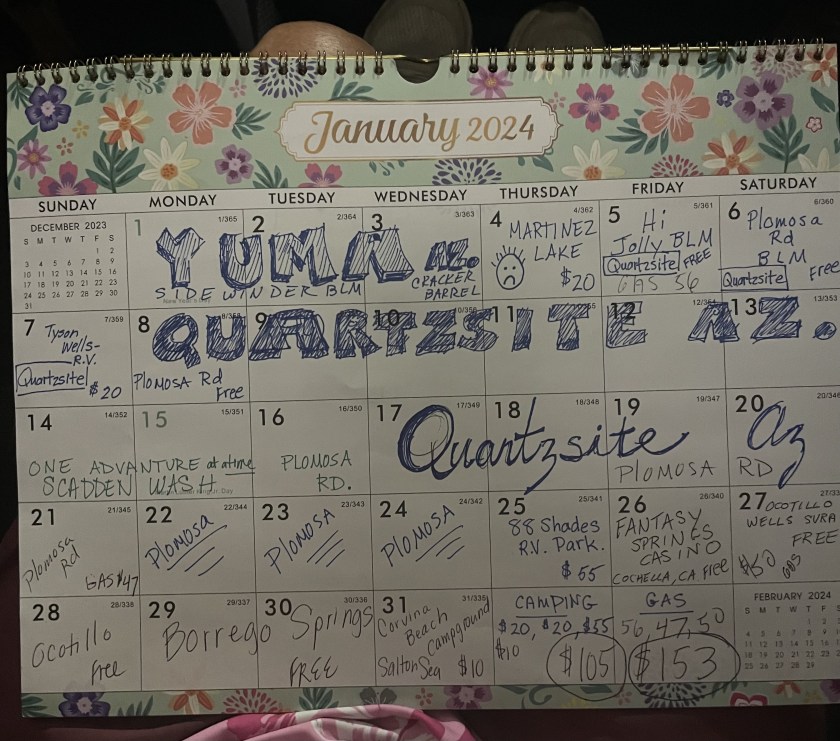 January 2024
SUNDAY MONDAY TUESDAY WEDNESDAY THURSDAY FRIDAY SATURDAY
DECEMBER 2023
S M T W T F S
1 2
3 4 5 6 7 8 9
10 11 12 13 14 15 16
17 18 19 20 21 22 23
24 25 26 27 28 29 30
31
1 1/365
2 2/364
3 3/363
YUMA AZ.
SIDE WINDER BLM
CRACKER
BARREL
4 4/362
MARTINEZ
LAKE
$20
5 5/361
Hi
Jolly BLM
Quartzsite FREE
GAS 56
6 6/360
Plomosa
Rd
BLM
Quartzsite Free
7 7/359
Tyson
Wells-
R.V.
Quartzsite
$20
8 9 10 11 12 13 13/353
QUARTZSITE AZ.
Plomosa Rd
Free
14 14/352
15 15/351
ONE ADVANTURE at atime
SCADDEN WASH
16 16/350
PLOMOSA
RD.
17 17/349
18 18/348
19 19/347
20 20/346
Quartzsite Az
PLOMOSA RD
21 21/345
Plomosa
Rd
GAS $47
22 22/344
Plomosa
23 23/343
Plomosa
24 24/342
Plomosa
25 25/341
88 Shades
RV. Park.
$55
26 26/340
FANTASY
SPRINGS
CASINO
COCHELLA, CA Free
27
OCOTILLO
WELLS SURA
FREE
GAS
28 28/338
Ocotillo
Free
29 29/337
30 30/336
Borrego Springs
FREE
31 31/335
Corvina
Beach
Campground
Salton Sea $10
CAMPING
$20, $20, $55
$10
$105
GAS
56, 47, 50
$153
FEBRUARY 2024
S M T W T F S
1 2 3
4 5 6 7 8 9
11 12 13 14 15 16
18 19 20 21 22 23
25 26 27 28 29